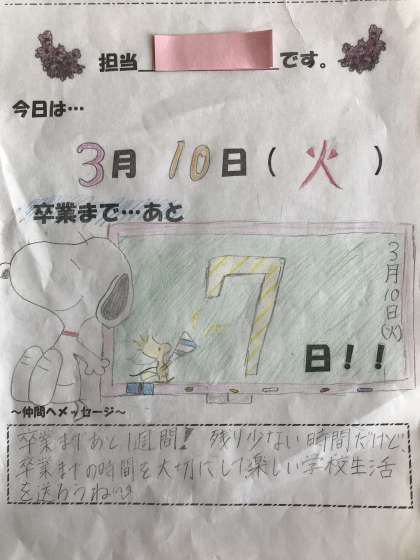 担当　　　です。
今日は…
3月 10日(火)
卒業まで…あと
7
日！！
3月10日(火)
～仲間へメッセージ～
卒業まであと1週間! 残り少ない時間だけど、
卒業までの時間を大切にして楽しい学校生活
を送ろうね